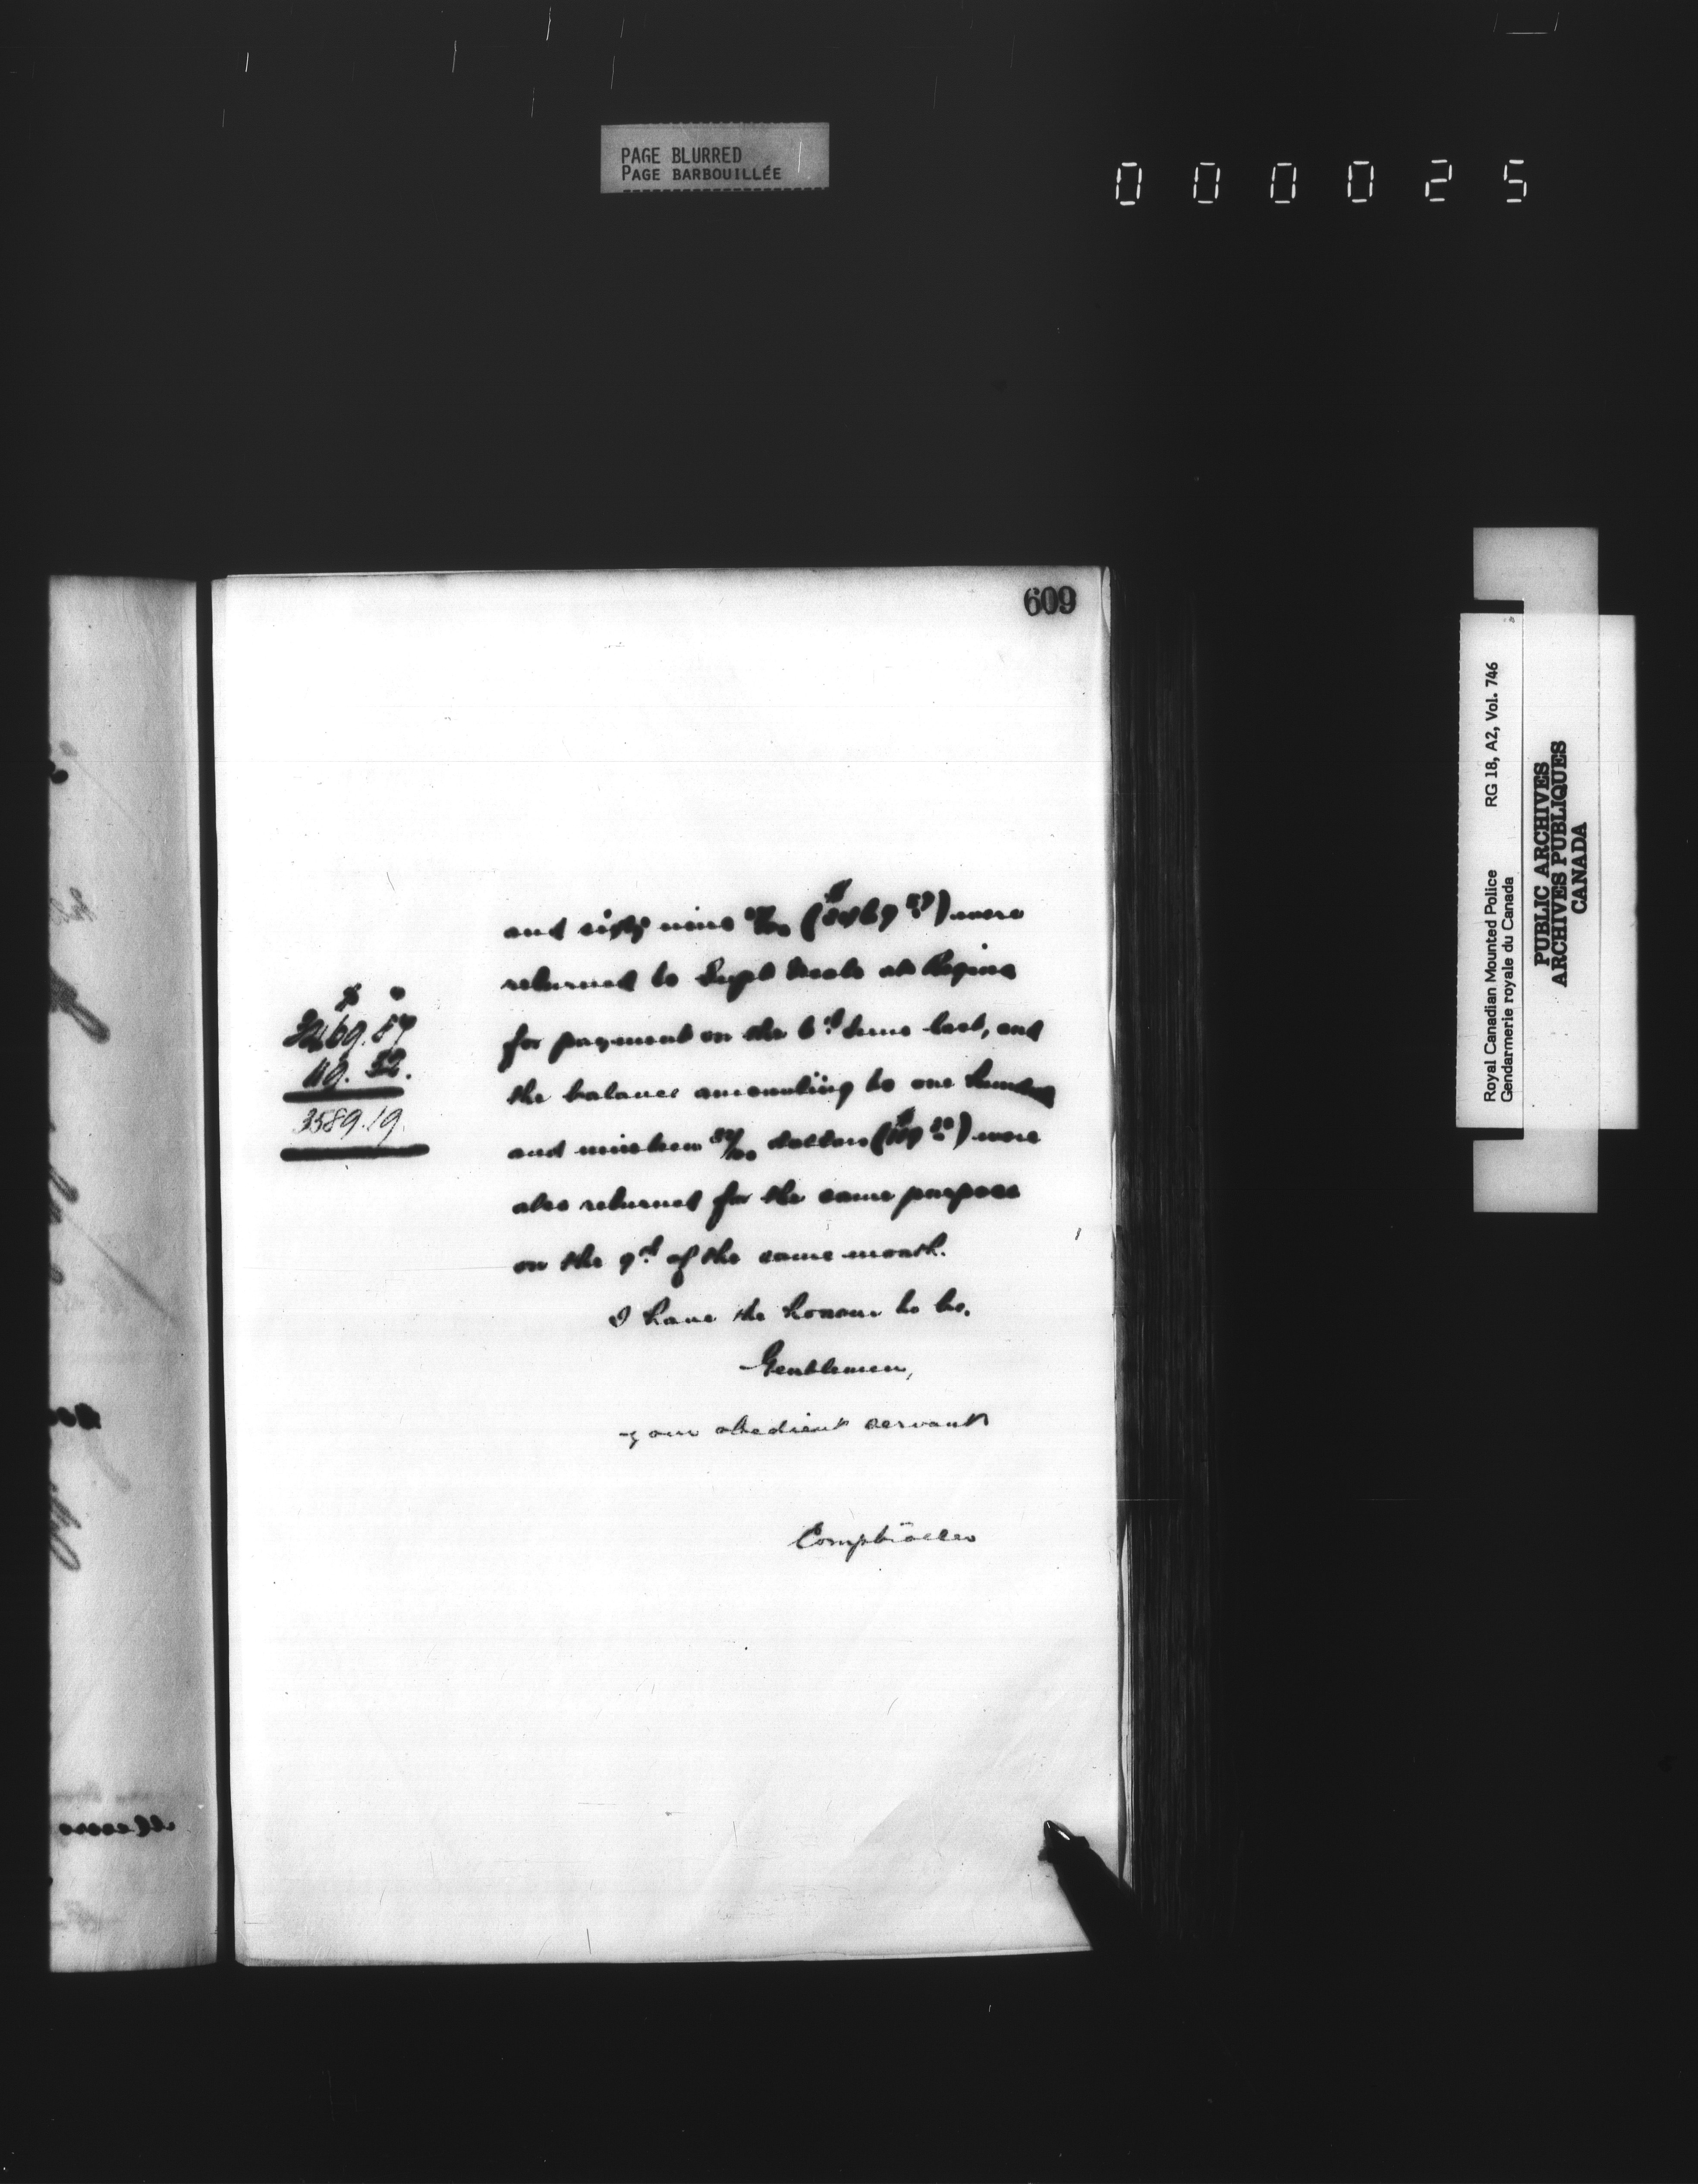 PAGE BLURRED
PAGE BARBOUILLÉE
000025
609
and sixty nine 87/100 ($3469 87) were
returned to Supt at Regina
for payment on the 6th June last, and
the balance amounting to one hundred
and nineteen 32/100 dollars ($119 32) were
also returned for the same purpose
on the 9th of the same month.
I have the honour to be,
Gentlemen,
your obedient servant
Comptroller
$ c
3469.87
119.32.
3589.19.
Royal Canadian Mounted Police RG 18, A2, Vol. 746
Gendarmerie royale du Canada
PUBLIC ARCHIVES
ARCHIVES PUBLIQUES
CANADA